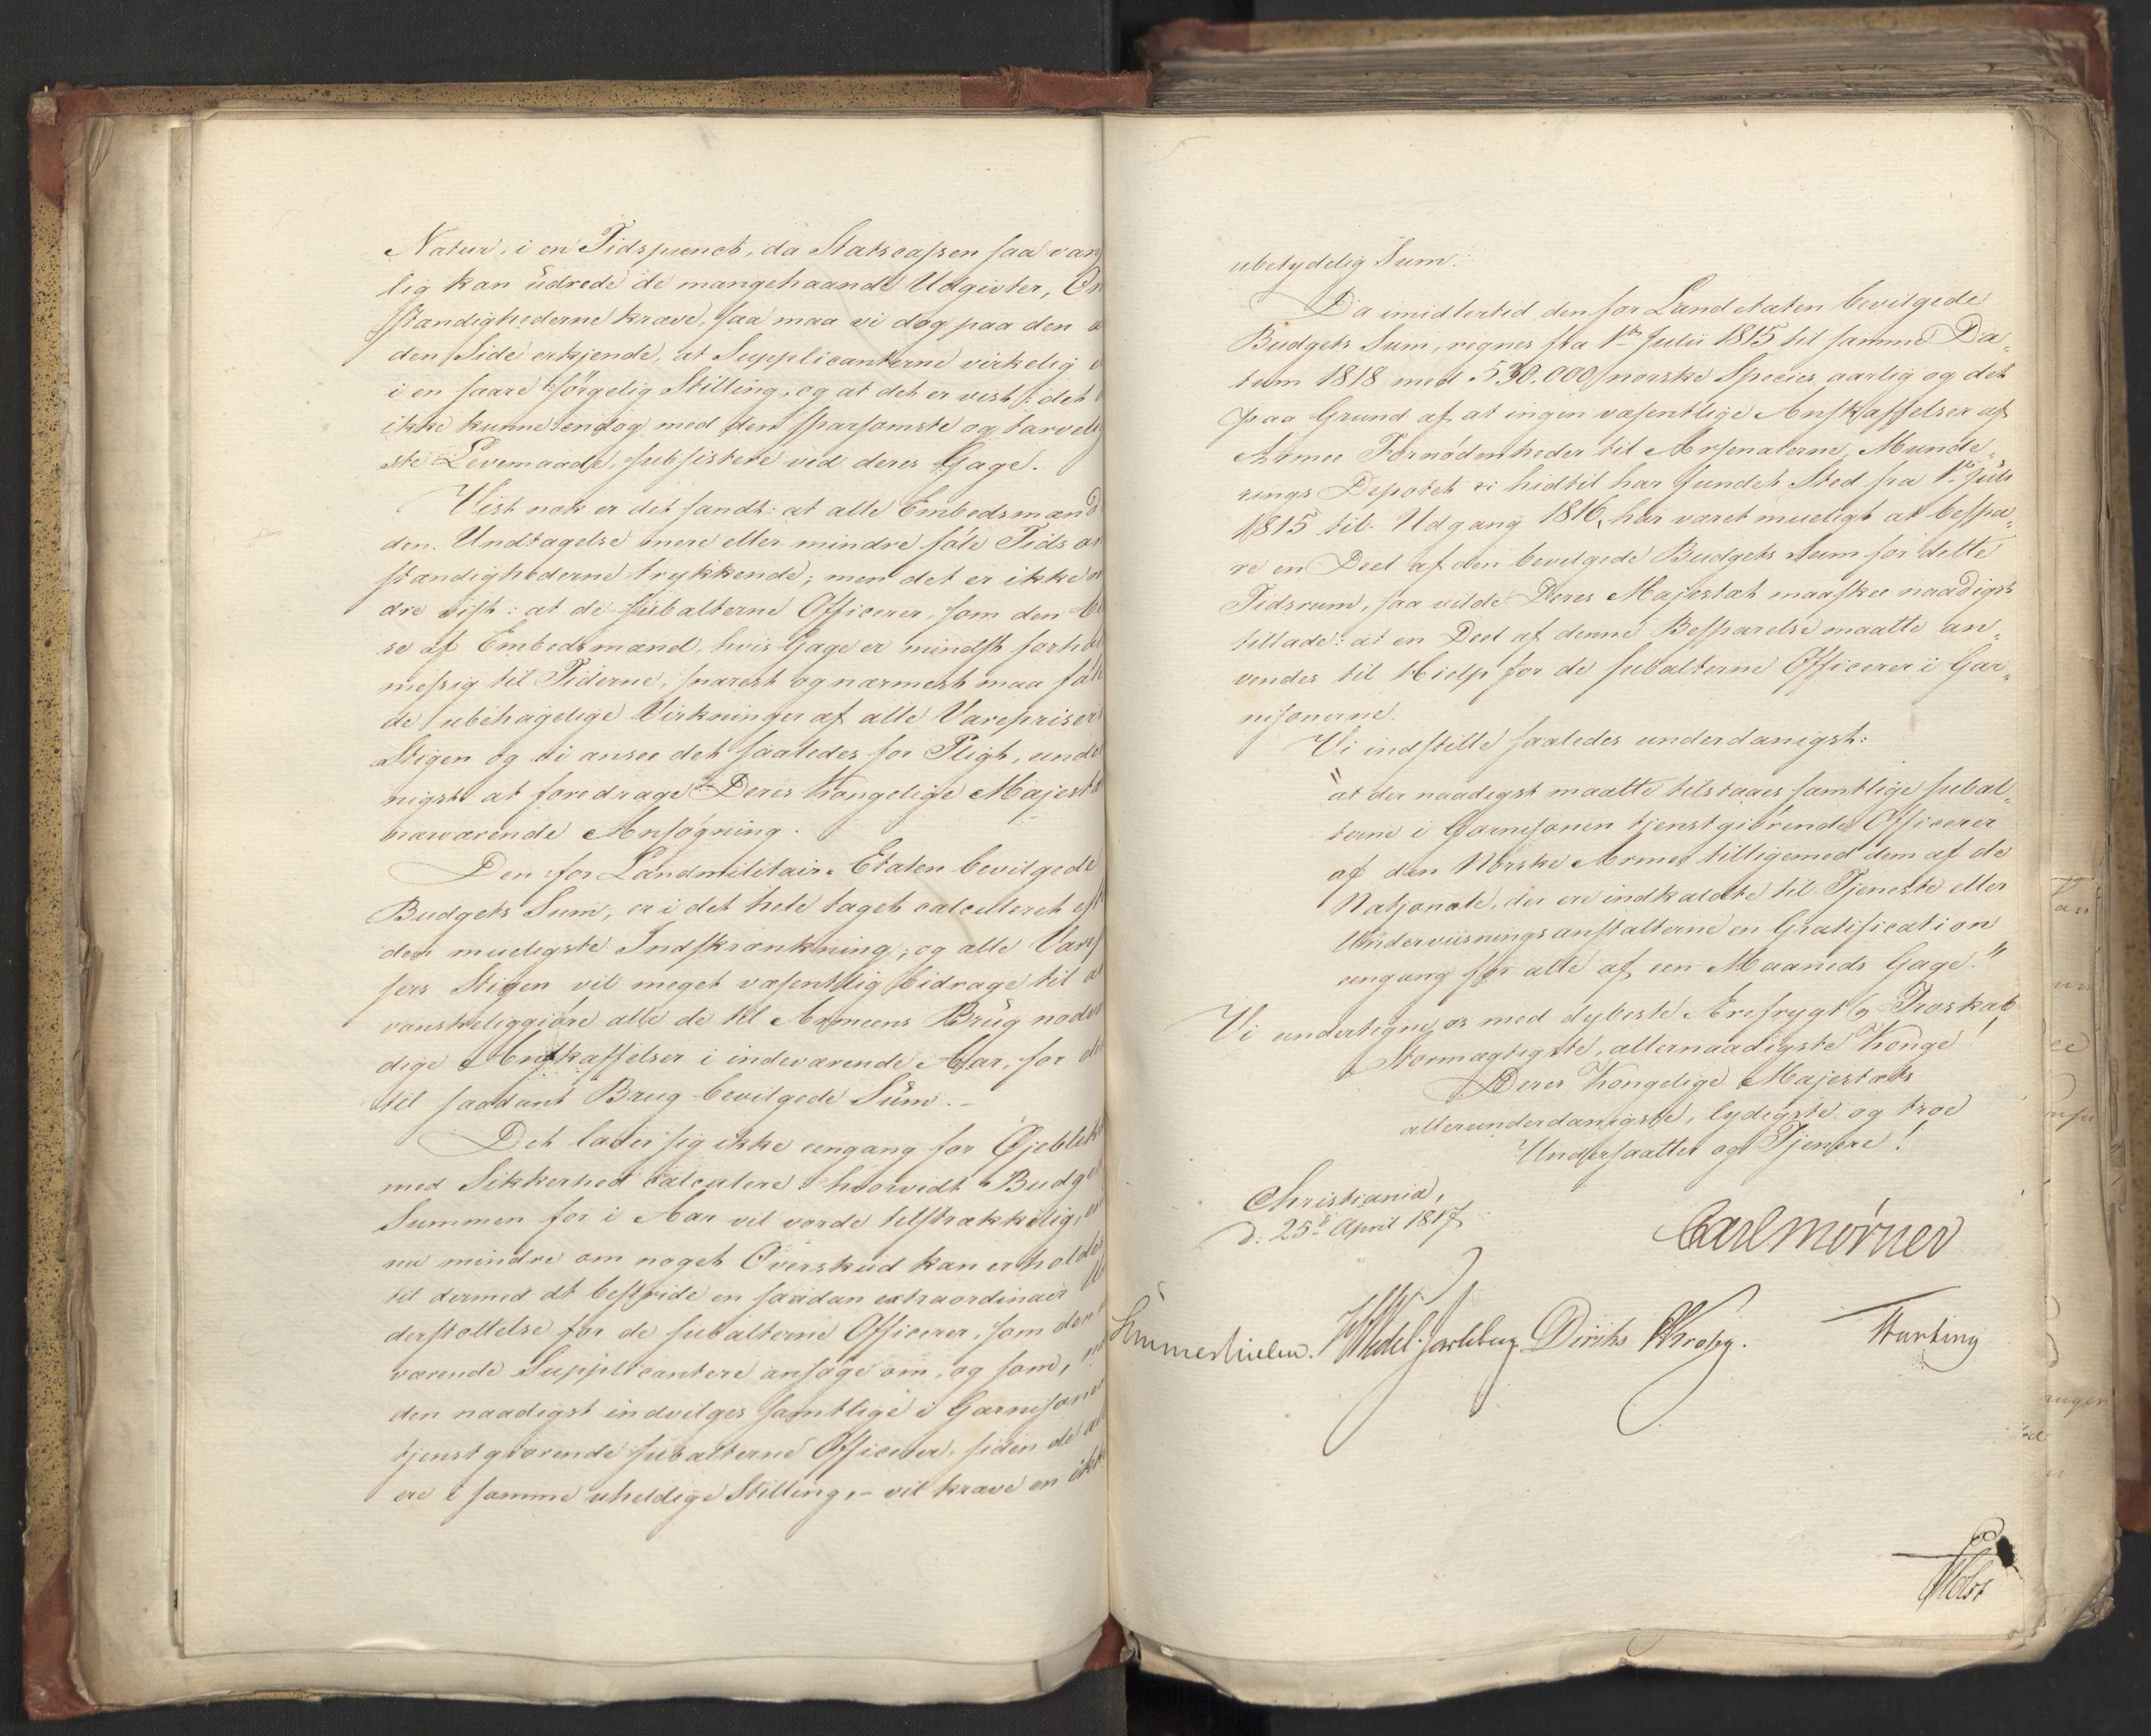 Natur, i en Tidspunct, da Statscassen saa van
lig kan udrede de mangehaande Udgivter, Om
stændighederne kræve, saa maa vi dog paa den
den Side erkjende, at Supplicanterne virkelig
i en saare sørgelig Stilling, og at det er vist: det
ikke kunne endog med den sparsomste og tarvelig
ste Levemaade, subsistere ved deres Gage.
Vist nok er det sandt: at alle Embedsmænd
den Undtagelse mere eller mindre føle Tids om
stændighederne trykkende; men det er ikke
dre vist: at de subalterne Officerer, som den
se af Embedsmænd, hvis Gage er mindst forhol
mæssig til Tiderne, snarest og nærmest maa føle
de ubehagelige Virkninger af alle Varepriser
Stigen og vi ansee det saaledes for Pligt, unde
nigst at foredrage Deres Kongelige Majestæ
nærværende Ansøgning.
Den for Landmilitair-Etaten bevilgede
Budgets Sum, er i det hele taget calculeret eft
den mueligste Indskrænkning; og alle Vare
sers Stigen vil meget væsentlig bidrage til
vanskeliggiøre alle de til Armeens Brug nødv
dige Anskaffelser i indeværende Aar, for
til saadant Brug bevilgede Sum.-
Det lader sig ikke eengang for Øjeblikk
med Sikkerhed calculere hvorvidt Budget
Summen for i Aar vil vorde tilstrækkelig,
nu mindre om noget Overskud kan erholdes
til dermed at bestride en saadan extraordinair
derstøttelse for de subalterne Officerer, som den
værende Supplicantere ansøge om, og som,
den naadigst indvilges samtlige i Garnisoner
tjenstgiørende subalterne Officerer, siden de
ere i samme uheldige Stilling,- vil kræve en ikke
ubetydelig Sum.
Da imidlertid den for Landetaten bevilgede
Budgets Sum, regnes fra 1ste Julii 1815 til samme Da„
tum 1818 med 530.000 norske Species aarlig og det
paa Grund af at ingen væsentlige Anskaffelser af
Armee Fornødenheder til Arsenalerne, Munde„
rings Depotet hidtil har fundet Sted fra 1ste Juli
1815 til Udgang 1816, har været mueligt at bespa„
re en Deel af den bevilgede Budgets Sum for dette
Tidsrum, saa vilde Deres Majestæt maaskee naadigst
tillade: at en Deel af denne Besparelse maatte an„
vendes til Hielp for de subalterne Officerer i Gar„
nisonerne.
Vi indstille saaledes underdanigst:
"at der naadigst maatte tilstaaes samtlige subal„
terne i Garnisonen tjenstgiørende Officerer
af den Norske Armee tilligemed dem af de
Natjonale, der ere indkaldte til Tjeneste eller
Underviisningsanstalterne en Gratification
eengang for alle af een Maaneds Gage."
Vi undertegne os med dybeste Ærefrygt og Troskab
Stormægtigste, allernaadigste Konge!
Deres Kongelige Majestæts
allerunderdanigste, lydigste og troe
Undersaatter og Tjenere!
Christiania,
d. 25de April 1817
Carl Mörner
Sommerhielm. Wedel-Jarlsberg Diriks Krohg.
Holst